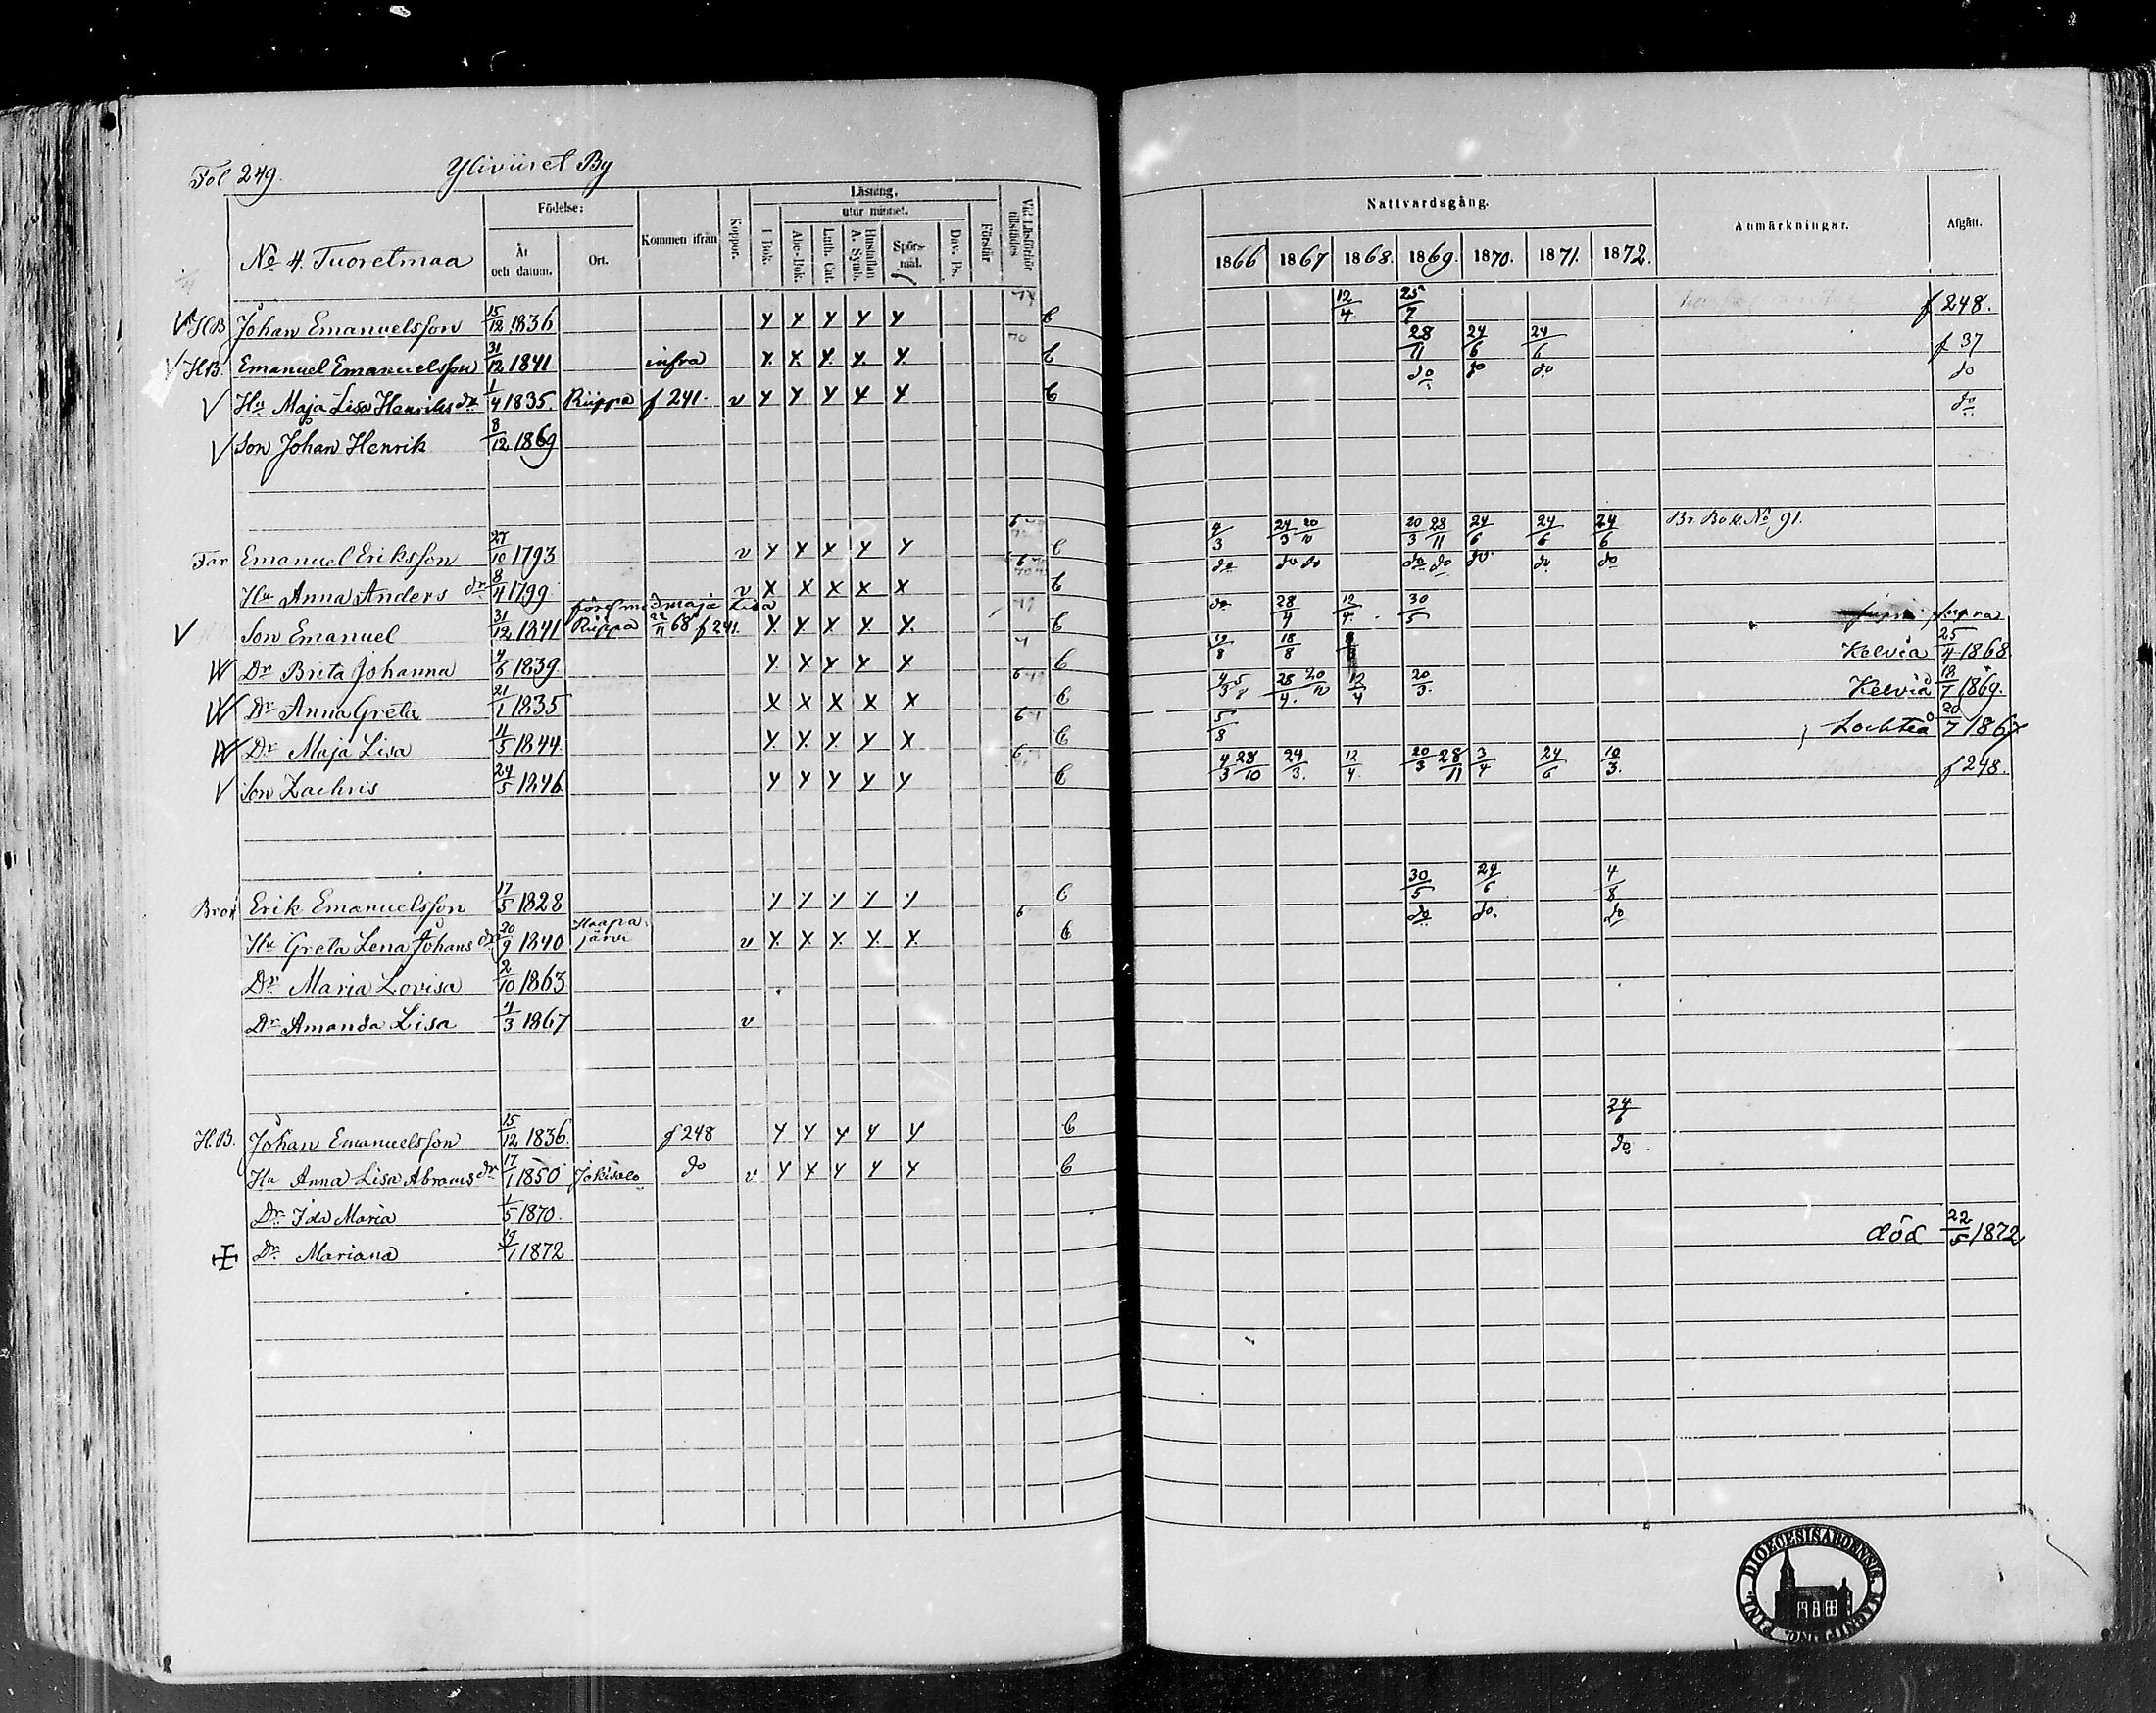 Fol 249. Yliviiret By
No 4. Tuoretmaa
Födelse:
År och datum.
Ort.
Kommen ifrån
Koppor.
Läsning.
utur minnet.
I Bok.
Abc-Bok.
Luth. Cat.
Hustaflan A. Symb.
Spörs-mål.
Dav. Ps.
Förstår
Vid Läsförhör tillstädes
Nattvardsgång.
1866 1867 1868. 1869. 1870. 1871. 1872.
Anmärkningar.
Afgått.
HB Johan Emanuelsson 15/12 1836 Y X Y Y Y b 12/4 25/7 f 248.
HB. Emanuel Emanuelsson 31/12 1841. infra X X Y. X. X. b 28/11 24/6 24/6 f 37
Hu Maja Lisa Henriksdr 1/4 1835. Riippa f 241. v Y Y Y Y Y b do do do do
Son Johan Henrik 8/12 1869 do
Far Emanuel Eriksson 27/10 1793 v Y Y Y Y Y b 4/3 24/3 20/10 20/3 28/11 24/6 24/6 24/6 Br. Bok. No 91.
Hu Anna Andersdr 8/4 1799 v X X X X X b do do do do do do do do
Son Emanuel 31/12 1841 förel med Maja Lisa Riippa 22/11 68 f 241. Y Y Y Y. Y. b do 28/4 12/4. 30/5 supra
Dr Brita Johanna 4/5 1839. Y. X X Y X b 19/8 18/8 Kelviå 25/4 1868
Dr Anna Greta 21/1 1835 X X X X X b 4/3 5/8 28/4. 20/10 12/4 20/3. Kelviå 18/7 1869.
Dr Maja Lisa 4/5 1844. Y Y. Y. Y X b 5/8 Lochteå 20/7 1867
Son Zachris 24/5 1846 Y Y Y Y Y b 4/3 28/10 24/3. 12/4. 20/3 28/11 3/4 24/6 10/3. f 248.
Bror Erik Emanuelsson 17/5 1828 Y Y Y Y Y b 30/5 24/6 4/8
Hu Greta Lena Johansdr 20/9 1840 Haapajärvi v X X X X. X b do do. do
Dr Maria Lovisa 2/10 1863
Dr Amanda Lisa 4/3 1867 v
H.B. Johan Emanuelsson 15/12 1836. f 248 Y Y Y Y Y b 24/6
Hu Anna Lisa Abramsdr 17/1 1850 Jokisalo do v Y X Y Y Y b do
Dr Ida Maria 1/5 1870.
Dr. Mariana 19/1 1872 död 22/5 1872
DIOECESIS ABOENSIS. MAGNI PRINC. FINL.